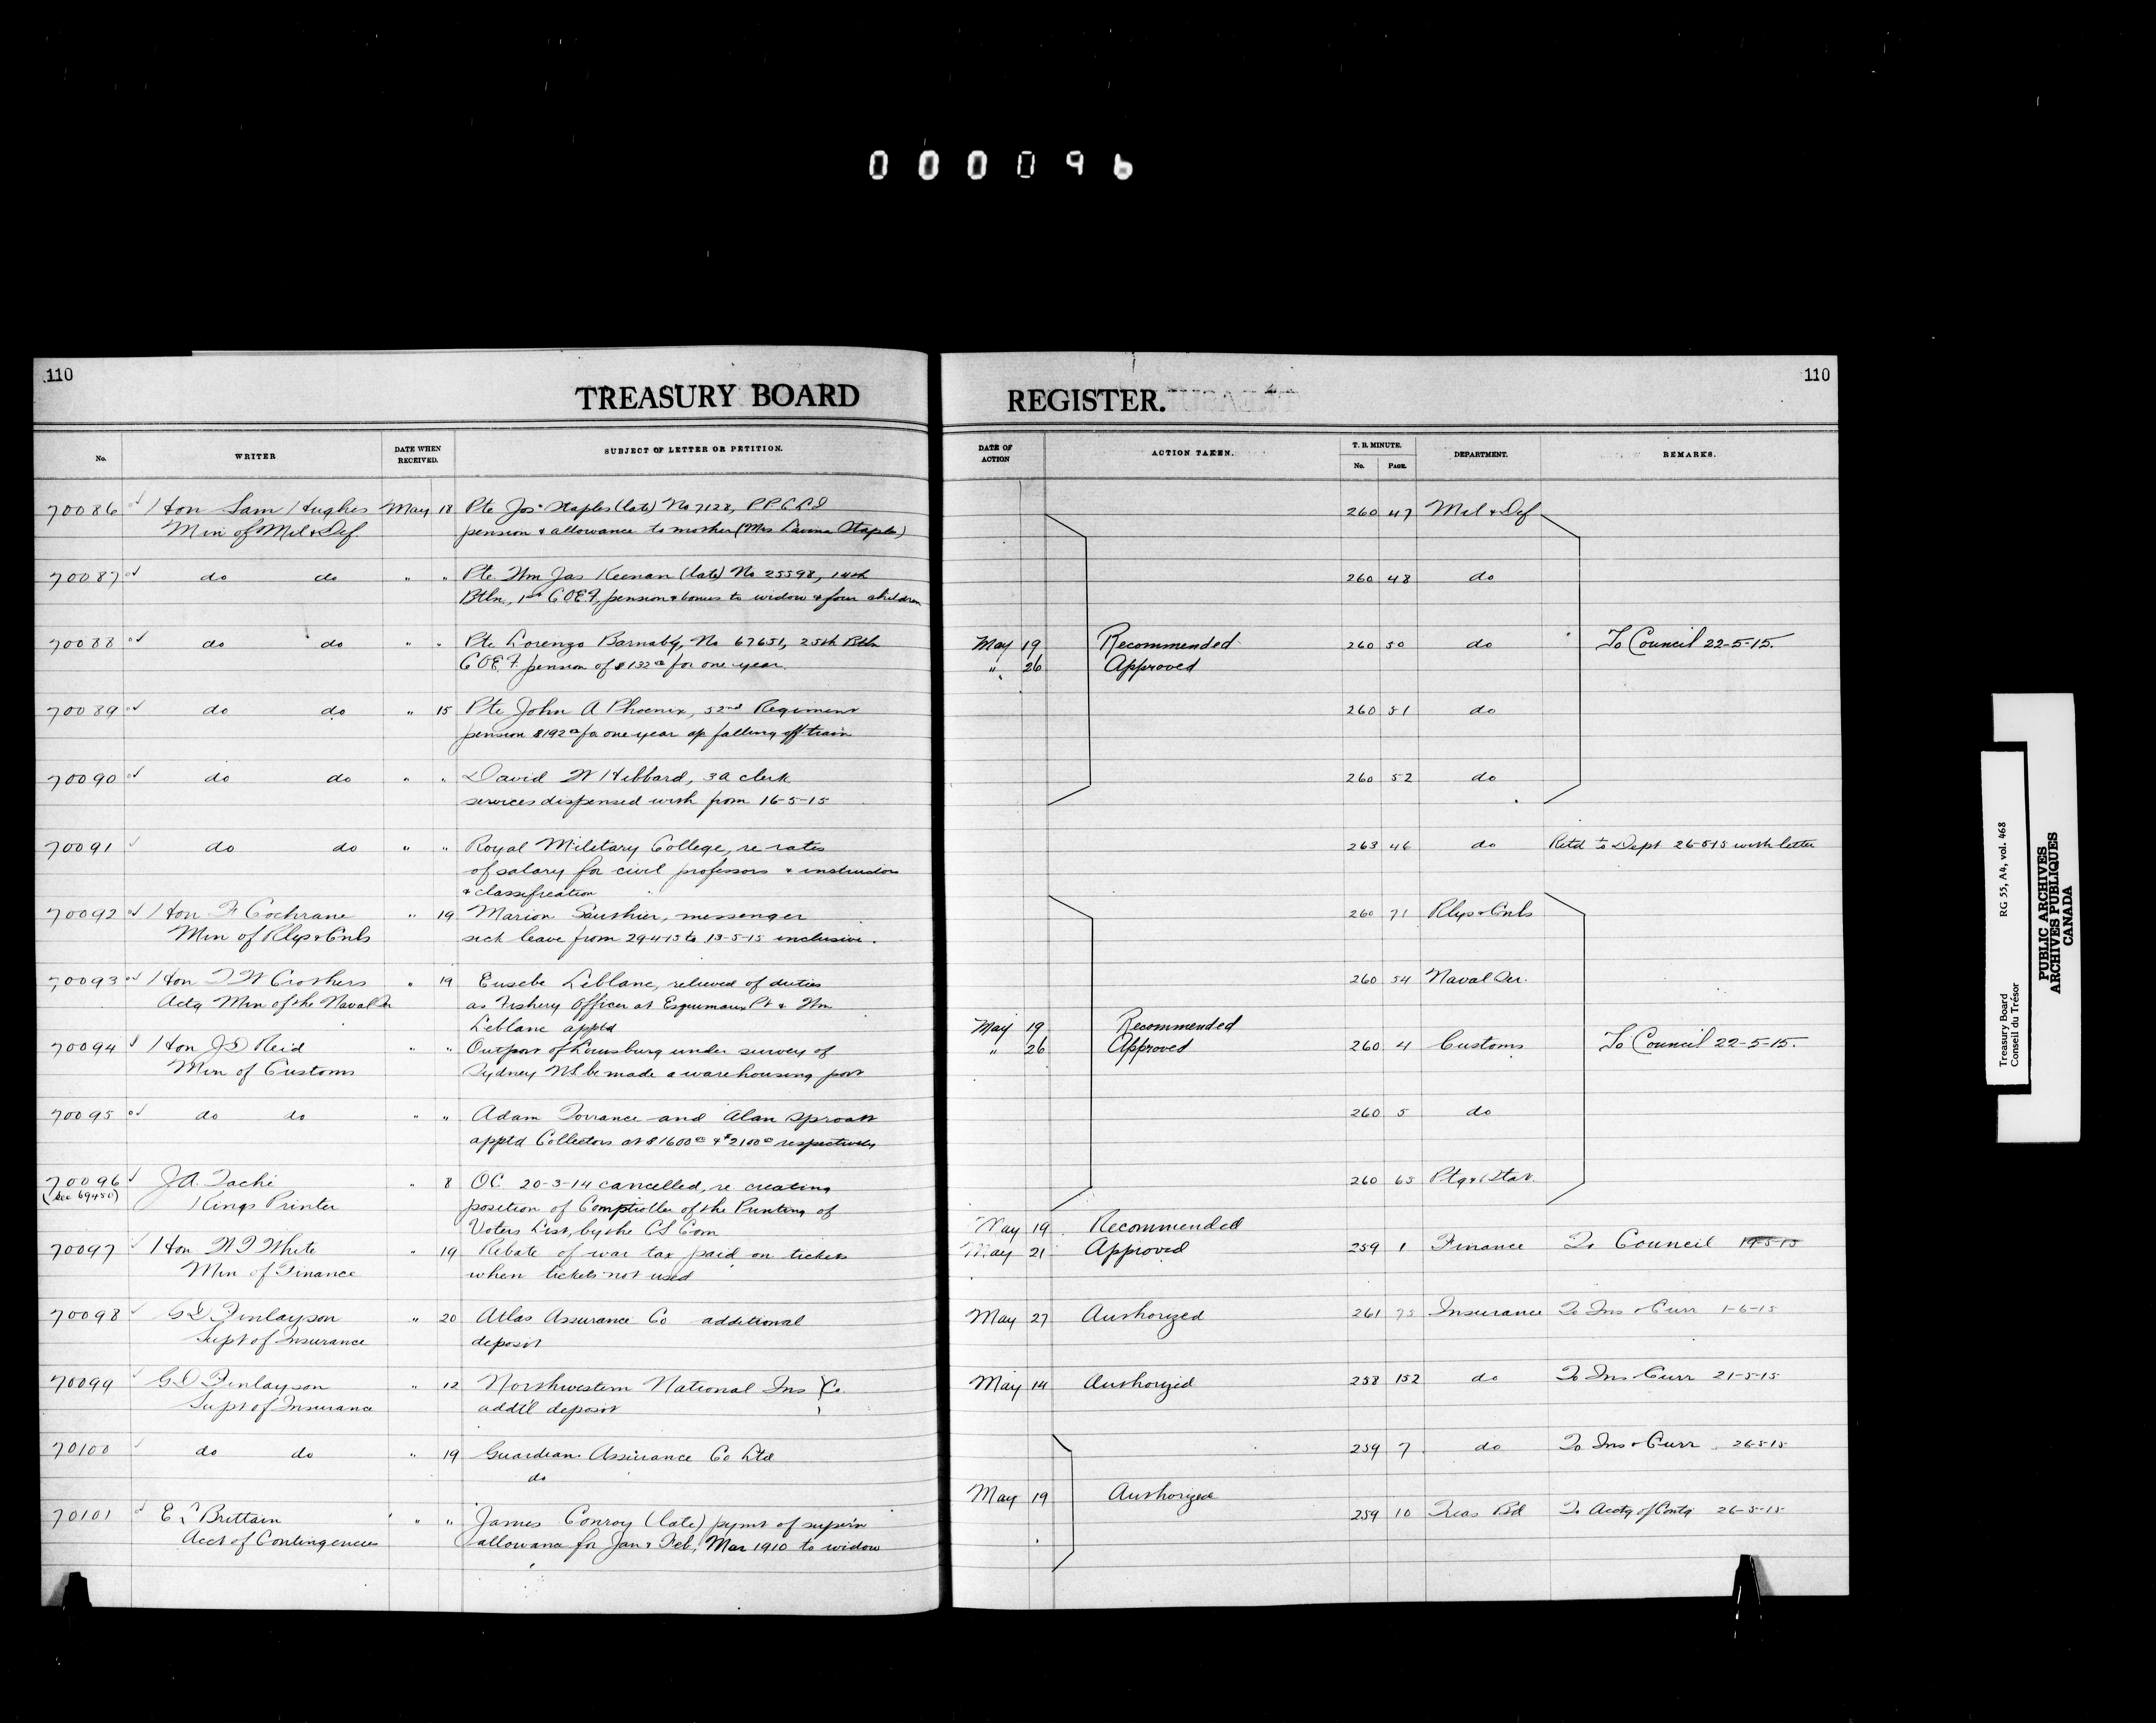 000096
110
TREASURY BOARD
No.
WRITER
DATE WHEN RECEIVED.
SUBJECT OF LETTER OR PETITION.
70086 Hon Sam Hughes May 18 Pte Jos. Staples (late) No 7128, PPCLI
Min of Mil & Def. pension & allowance to mother (Mrs Staples)
70087 do do " " Pte Wm Jas Keenan (late) No 25598, 14th
Btln, 1st COEF, pension & bonus to widow & four children
70088 do do " " Pte Lorenzo Barnaby, No 67651, 25th Btln
COEF pension of $132 00 for one year
70089 do do " 15 Pte John A Phoenix, 52nd Regiment
pension $192 00 for one year ap falling off train
70090 do do " " David W Hibbard, 3a clerk
services dispensed with from 16-5-15
70091 do do " " Royal Military College, re rates
of salary for civil professors & instructors
& classification
70092 Hon F Cochrane " 19 Marion Gauthier, messenger
Min of Rlys & Cnls sick leave from 29-4-15 to 13-5-15 inclusive.
70093 Hon T W Crothers " 19 Eusebe Leblanc, relieved of duties
Actg Min of the Naval Ser as Fishery Officer at Esquimaux Pt & Wm
Leblanc apptd
70094 Hon J D Reid " " Outport of Louisburg under survey of
Min of Customs Sydney NS be made a warehousing port
70095 do do " " Adam Torrance and Alan Sproatt
apptd Collectors at $1600 00 & $2100 00 respectively
70096 J A. Tache " 8 OC 20-3-14 cancelled, re creating
(See 69450) Kings Printer position of Comptroller of the Printing of
Voters List, by the CS Com
70097 Hon W T White " 19 Rebate of war tax paid on tickets
Min of Finance when tickets not used
70098 G D Finlayson " 20 Atlas Assurance Co additional
Supt of Insurance deposit
70099 G D Finlayson " 12 Northwestern National Ins Co.
Supt of Insurance addtl deposit
70100 do do " 19 Guardian Assurance Co Ltd
do
70101 E Brittain " " James Conroy (late) pymt of superan
Acct of Contingencies allowance for Jan & Feb, Mar 1910 to widow
110
REGISTER.
DATE OF ACTION
ACTION TAKEN.
T. B. MINUTE.
No. PAGE.
DEPARTMENT.
REMARKS.
260 47 Mil & Def
260 48 do
May 19 Recommended 260 50 do To Council 22-5-15.
" 26 Approved
260 51 do
260 52 do
263 46 do Retd to Dept 26-5-15 with letter
260 71 Rlys & Cnls
260 54 Naval Ser.
May 19 Recommended
" 26 Approved 260 4 Customs To Council 22-5-15.
260 5 do
260 65 Ptg & Stat.
May 19 Recommended
May 21 Approved 259 1 Finance To Council 19-5-15
May 27 Authorized 261 75 Insurance To Ins & Curr 1-6-15
May 14 Authorized 258 152 do To Ins & Curr 21-5-15
259 7 do To Ins & Curr 26-5-15
May 19 Authorized
259 10 Treas Bd To Acctg of Contg 26-5-15
Treasury Board RG 55, A4, vol. 468
Conseil du Trésor
PUBLIC ARCHIVES
ARCHIVES PUBLIQUES
CANADA